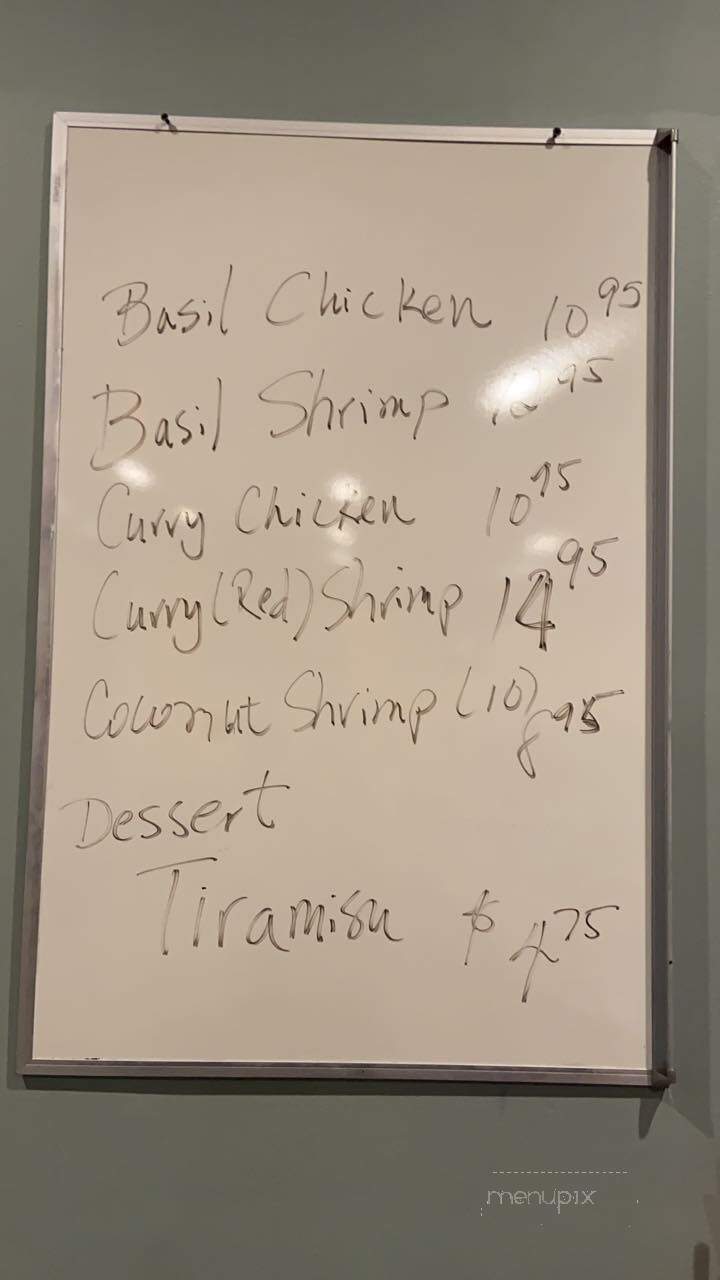 Basil Chicken 10 95
Basil Shrimp 95
Curry Chicken 10 95
Curry (Red) Shrimp 14 95
Coconut Shrimp (10) 8 95
Dessert
Tiramisu $ 4 75
menupix